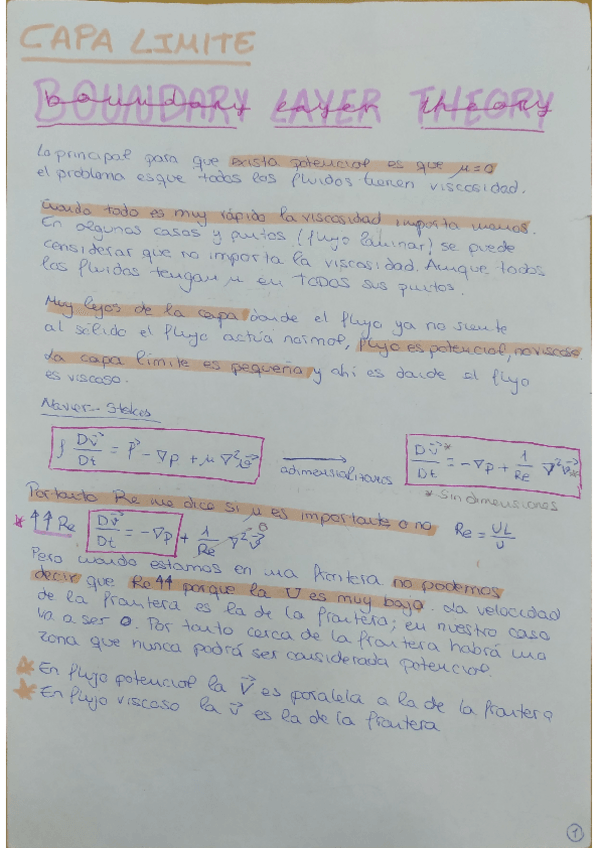 CAPA LIMITE
BOUNDARY LAYER THEORY
boundary layer theory
La principal para que exista potencial es que μ=0
el problema es que todos los fluidos tienen viscosidad.
Cuando todo es muy rápido la viscosidad importa menos.
En algunos casos y puntos (flujo laminar) se puede
considerar que no importa la viscosidad. Aunque todos
los fluidos tengan μ en TODOS sus puntos.
Muy lejos de la capa donde el flujo ya no siente
al sólido el flujo actúa normal, flujo es potencial, no viscoso.
La capa límite es pequeña y ahí es donde el flujo
es viscoso.
Navier-Stokes
ρ Dv⃗/Dt = f⃗ - ∇p + μ ∇²v⃗ → adimensionalizamos Dv⃗*/Dt = -∇p + 1/Re ∇²v⃗*
* sin dimensiones
Por tanto Re me dice si μ es importante o no Re = UL/ν
* ↑↑ Re Dv⃗/Dt = -∇p + 1/Re ∇²v⃗ 0
Pero cuando estamos en una frontera no podemos
decir que Re ↑↑ porque la U es muy baja. La velocidad
de la frontera es la de la frontera; en nuestro caso
va a ser 0. Por tanto cerca de la frontera habrá una
zona que nunca podrá ser considerada potencial.
* En flujo potencial la v⃗ es paralela a la de la frontera
* En flujo viscoso la v⃗ es la de la frontera
1